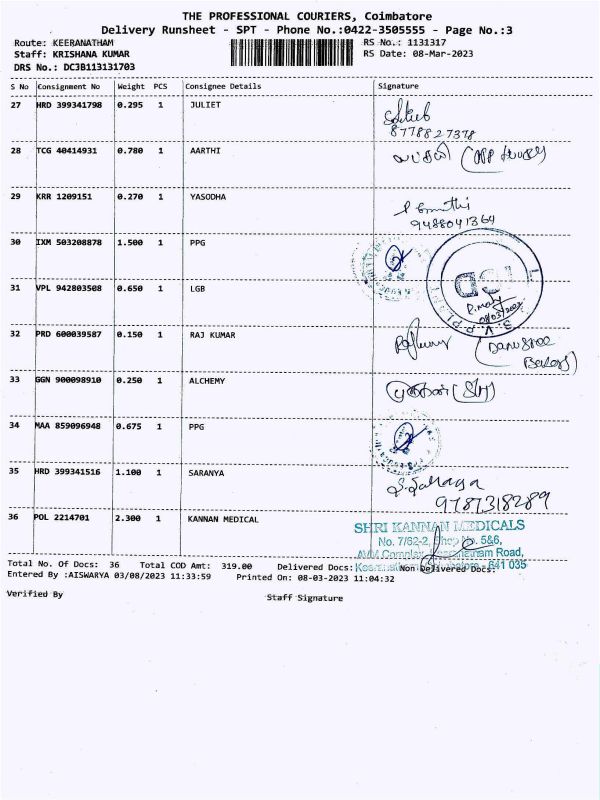 THE PROFESSIONAL COURIERS, Coimbatore
Delivery Runsheet - SPT - Phone No.:0422-3505555 - Page No.:3
Route: KEERANATHAM
RS No.: 1131317
Staff: KRISHANA KUMAR
RS Date: 08-Mar-2023
DRS No.: DCJB113131703
S No Consignment No Weight PCS Consignee Details Signature
27 HRD 399341798 0.295 1 JULIET
8778827378
28 TCG 40414931 0.780 1 AARTHI
29 KRR 1209151 0.270 1 YASODHA
9488041364
30 IXM 503208878 1.500 1 PPG
31 VPL 942803508 0.650 1 LGB
08/03/2023
32 PRD 600039587 0.150 1 RAJ KUMAR
33 GGN 900098910 0.250 1 ALCHEMY
34 MAA 859096948 0.675 1 PPG
35 HRD 399341516 1.100 1 SARANYA
9787318289
36 POL 2214701 2.300 1 KANNAN MEDICAL
SHRI KANNAN MEDICALS
No. 7/62-2, Shop No. 5&6,
Road,
641 035
Total No. Of Docs: 36 Total COD Amt: 319.00 Delivered Docs: Non Delivered Docs:
Entered By :AISWARYA 03/08/2023 11:33:59 Printed On: 08-03-2023 11:04:32
Verified By Staff Signature